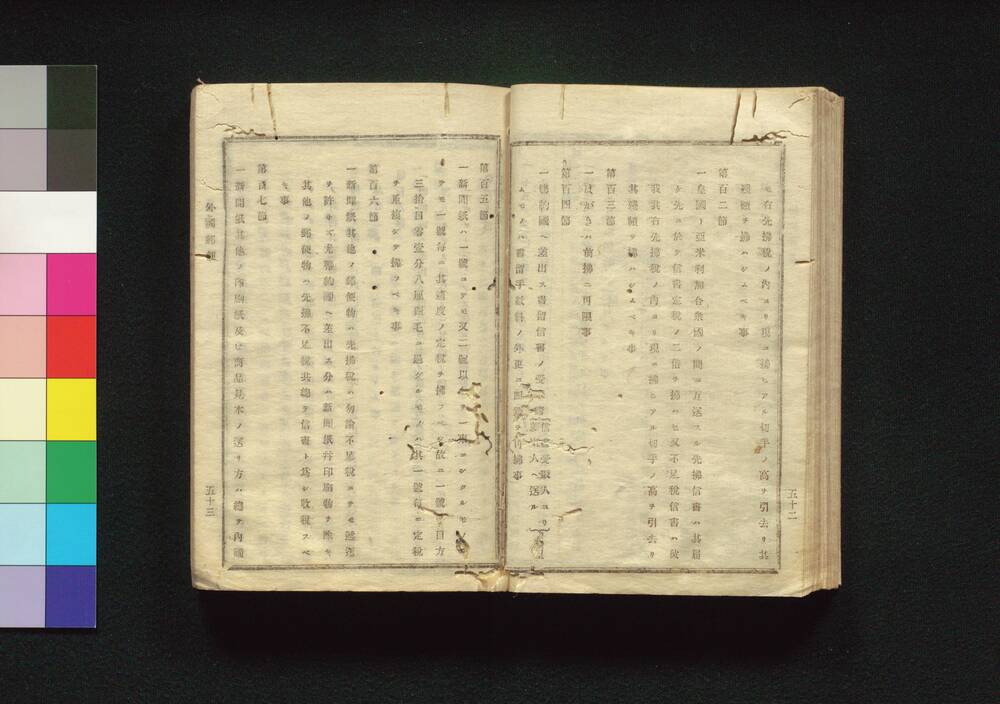 モ右先拂税ノ內ヨリ現ニ拂ヒアル切手ノ高ヲ引去リ其
殘額ヲ拂ハシムベキ事
第百二節
一皇國ト亞米利加合衆國ノ間ニ互送スル先拂信書ハ其屆
ケ先ニ於テ信書定税ノ二倍ヲ拂ハセ又不足税信書ハ
我其右先拂税ノ內ヨリ現ニ拂ヒアル切手ノ高ヲ引去リ
其殘額ヲ拂ハシムベキ事
第百三節
一はがきハ前拂ニ可限事
第百四節
一聯約國ヘ差出ス書留信書ノ受取人ヘ送ル
ムモノハ書留手數料ノ外更ニ四錢ヲ前拂事
五十二
第百五節
一新聞紙ハ一號ニテモ又二號以上ヲ一束ニシタルモノ
ヲモ一號每ニ其適度ノ定税ヲ拂フベシ故ニ一號ノ目方
三拾目零壹分八厘四毛ニ過グルモノハ其一號每ニ定税
ヲ重複シテ拂フベキ事
第百六節
一新聞紙其他ノ郵便物ハ先拂税ハ勿論不足税ニテモ遞送
ヲ許サズ尤聯約國ヘ差出ス分ハ新聞紙幷印刷物ヲ除キ
其他ノ郵便物ハ先拂不足税共總テ信書ト爲シ收税スベ
キ事
第百七節
一新聞紙其他ノ印刷紙及ビ商品見本ノ送リ方ハ總テ內國
外國郵便
五十三